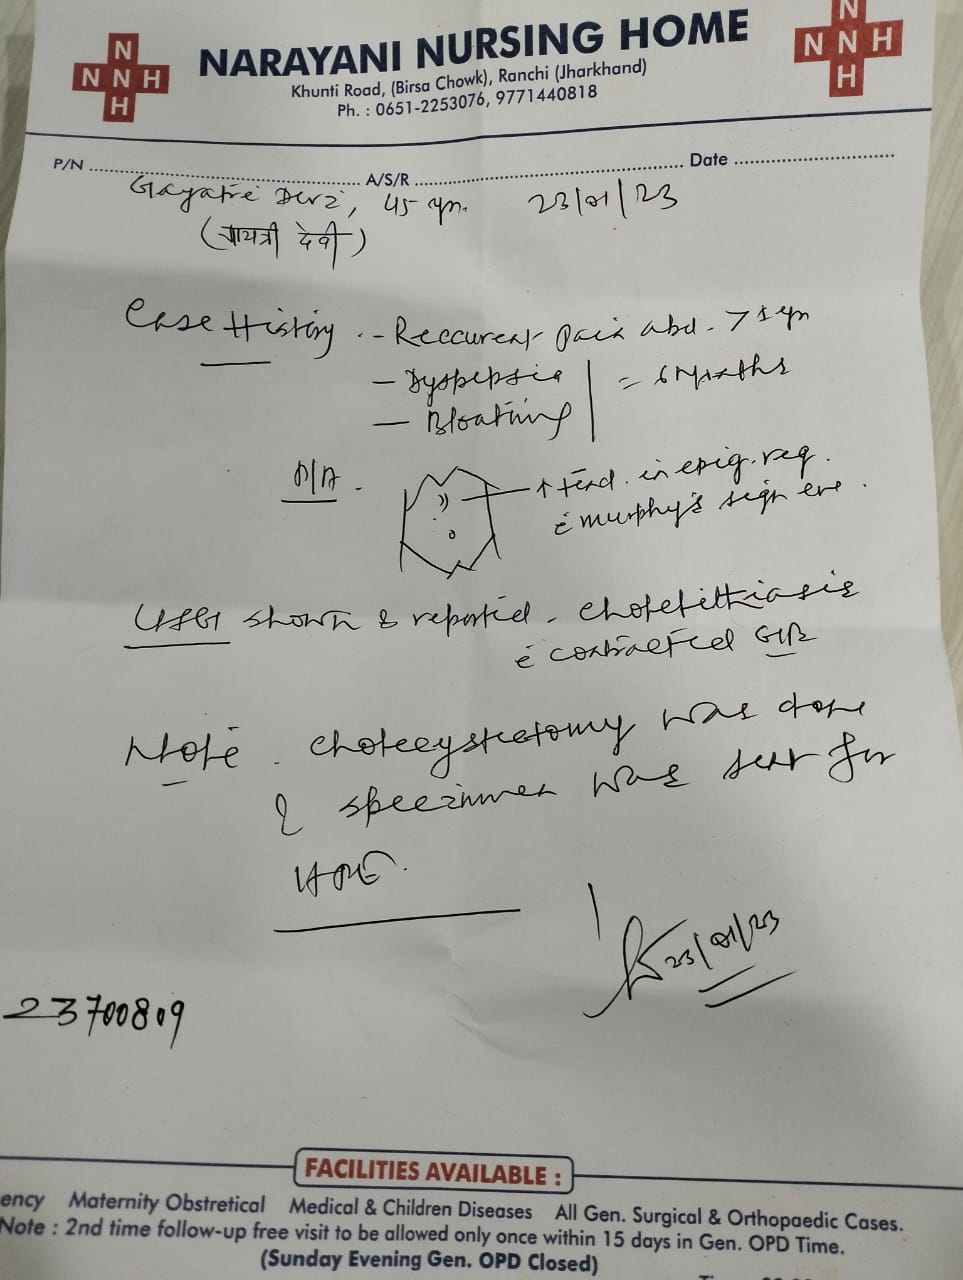 N
N N H
H
NARAYANI NURSING HOME
Khunti Road, (Birsa Chowk), Ranchi (Jharkhand)
Ph. : 0651-2253076, 9771440818
N
N N H
H
P/N .......... A/S/R .......... Date ..........
Gayatri Devi, 45 yrs. 23/01/23
(गायत्री देवी)
Case History - Reccurent pain abd. > 1 yr
- Dyspepsia
= 6 Months
- Bloating
P/A - ↑ tend. in epig. reg.
c̄ murphy's sign
USG shown & reported - cholelithiasis
c̄ contracted GB
Note. cholecystectomy was done
& specimen was sent for
HPE.
23/01/23
23700809
FACILITIES AVAILABLE :
ency Maternity Obstretical Medical & Children Diseases All Gen. Surgical & Orthopaedic Cases.
Note : 2nd time follow-up free visit to be allowed only once within 15 days in Gen. OPD Time.
(Sunday Evening Gen. OPD Closed)